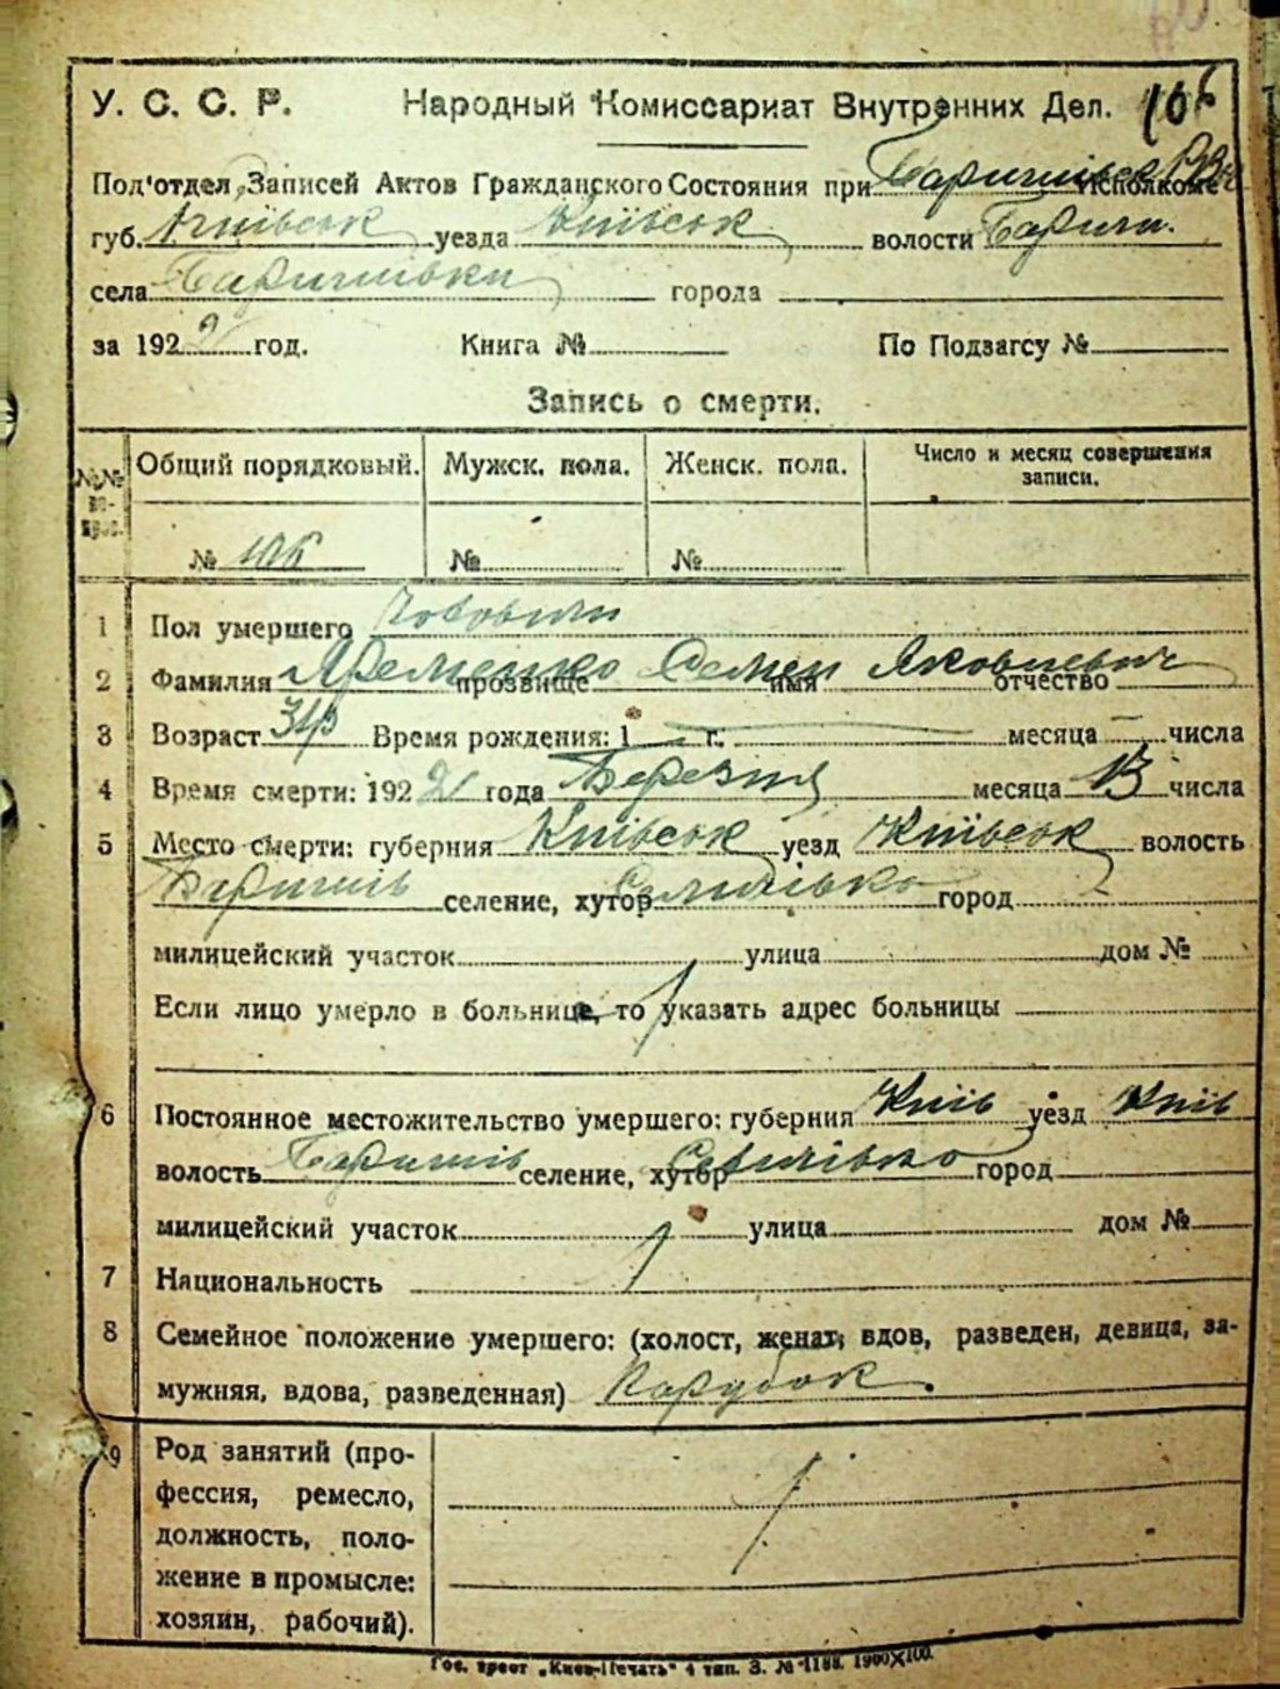 106
У. С. С. Р. Народный Комиссариат Внутренних Дел.
Под'отдел „Записей Актов Гражданского Состояния при Исполкоме
губ. Київськ уезда Київськ волости Бариш.
села Баришівки города
за 192 год. Книга № По Подзагсу №
Запись о смерти.
№№ Общий порядковый. Мужск. пола. Женск. пола. Число и месяц совершения
записи.
№ 106 № №
1 Пол умершего Чоловічи
2 Фамилия Яременко прозвище Семен имя Яковлевич отчество
3 Возраст Время рождения: 1 г. месяца числа
4 Время смерти: 192 года Березня месяца 13 числа
5 Место смерти: губерния Київськ уезд Київськ волость
Баришів селение, хутор город
милицейский участок улица дом №
Если лицо умерло в больнице, то указать адрес больницы
6 Постоянное местожительство умершего: губерния Київ уезд Київ
волость Баришів селение, хутор город
милицейский участок улица дом №
7 Национальность
8 Семейное положение умершего: (холост, женат, вдов, разведен, девица, за-
мужняя, вдова, разведенная) Парубок.
9 Род занятий (про-
фессия, ремесло,
должность, поло-
жение в промысле:
хозяин, рабочий).
Гос. трест „Киев-Печать" 4 тип. З. № 1188. 1900×100.